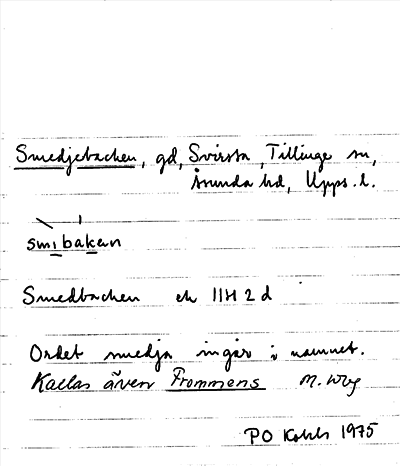 Smedjebacken, gd, Svirsta, Tillinge sn,
Åsunda hd, Upps. l.
smibakan
Smedbacken ek 11H 2 d
Ordet smedja ingår i namnet.
Kallas även Frommens
PO 1975